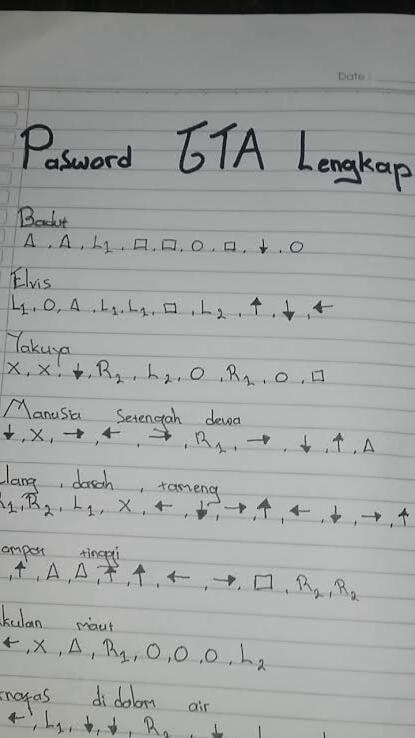 Date :
Pasword GTA Lengkap
Badut
Δ, Δ, L1, □, □, O, □, ↓, O
Elvis
L1, O, Δ, L1, L1, □, L2, ↑, ↓, ←
Yakuya
X, X, ↓, R2, L2, O, R1, O, □
Manusia Setengah dewa
↓, X, →, ←, →, R1, →, ↓, ↑, Δ
, darah, tameng
R1, R2, L1, X, ←, ↓, →, ↑, ←, ↓, →, ↑
tinggi
↑, Δ, Δ, ↑, ↑, ←, →, □, R2, R2
maut
←, X, Δ, R1, O, O, O, L2
di dalam air
←, L1, ↓, ↓, R2, ↓